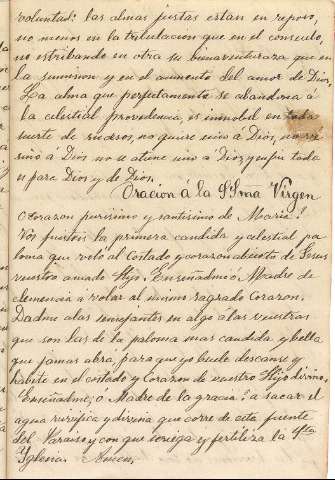 voluntad: las almas justas están en reposo,
no menos en la tribulación que en el consuelo,
no estribando en otra su bienaventuraza que en
la sumision y en el aumento del amor de Dios,
La alma que perfectamente se abandona á
la celestial providencia, es inmobil en toda
suerte de susesos, no quiere sino á Dios, no
sinó á Dios no se atiene sino á Dios y en fin toda
es para Dios y de Dios.
Oracion á la SSma Virgen
O Corazon purisimo y santisimo de Maria!
Vos fuisteis la primera candida y celestial pa
loma que voló al Costado y corazon abierto de Jesus
vuestro amado Hijo. Enseñadme ó Madre de
clemencia á volar al mismo sagrado Corazon.
Dadme alas semejantes en algo á las vuestras
que son las de la paloma mas candida y bella
que jamas abrá, para que yo buele descanse y
habite en el costado y Corazon de vuestro Hijo divino.
Enseñadme; O Madre de la gracia! a sacar el
agua purifica y divina que corre de esta fuente
del Paraiso y con que se riega y fertiliza la
Yglesia. Amen.